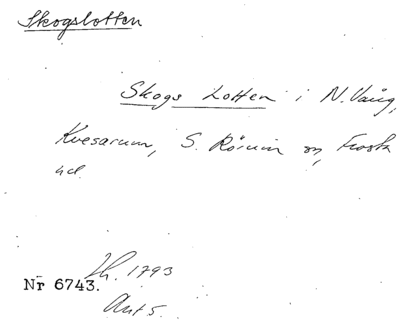 Skogslotten
Skogs Lotten i N. Vång,
Kvesarum, S. Rörum sn, Frosta
hd.
Lh. 1793
Nr 6743.
Akt 5.